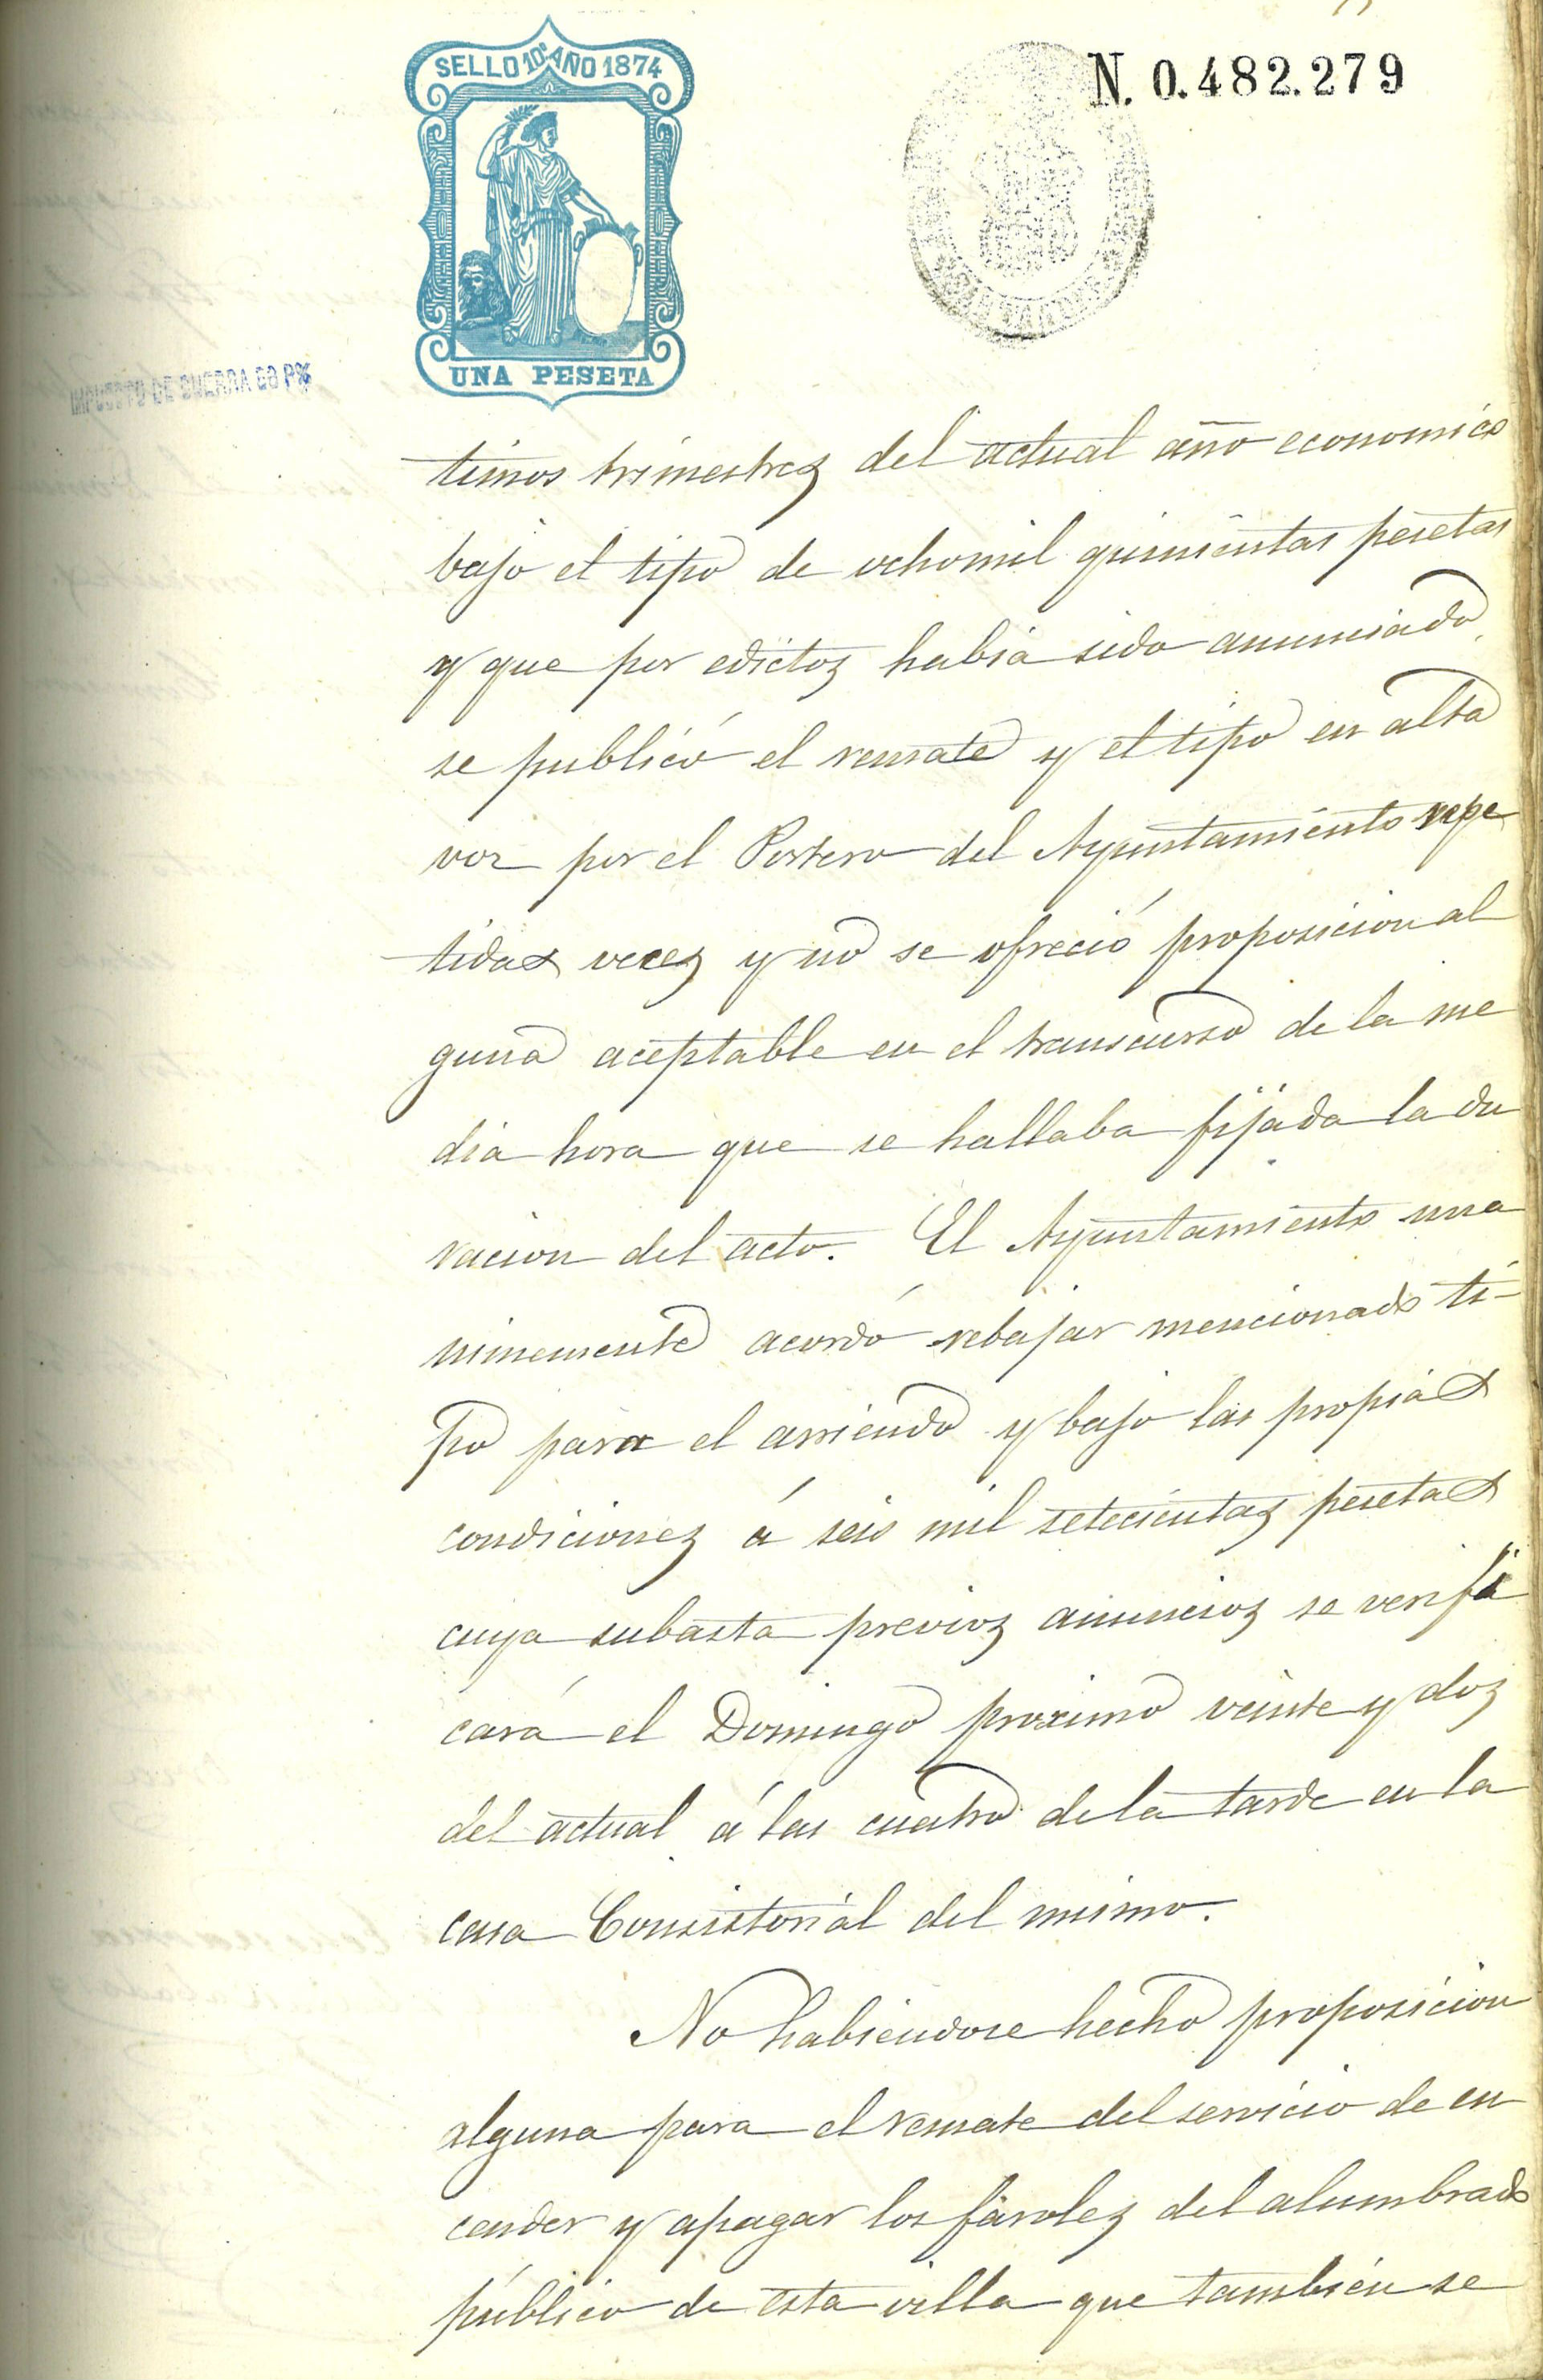 SELLO 10º AÑO 1874
N. 0.482.279
UNA PESETA
IMPUESTO DE GUERRA 50 P%
timos trimestrez del actual año economico
bajo el tipo de ochomil quinientas pesetas
y que por edictoz habia sido anunciado
se publicó el remate y el tipo en alta
voz por el Portero del Ayuntamiento repe
tidas vecez y no se ofreció proposicion al
guna aceptable en el transcurso de la me
dia hora que se hallaba fijada la du
racion del acto. El Ayuntamiento una
nimemente acordó rebajar mencionado ti-
po para el arriendo y bajo las propias
condicionez á seis mil setecientaz pesetas
cuya subasta previoz anuncioz se verifi
cará el Domingo proximo veinte y doz
del actual á las cuatro de la tarde en la
casa Consistorial del mismo.
No habiendose hecho proposicion
alguna para el remate del servicio de en
cender y apagar los farolez del alumbrado
público de esta villa que tambien se